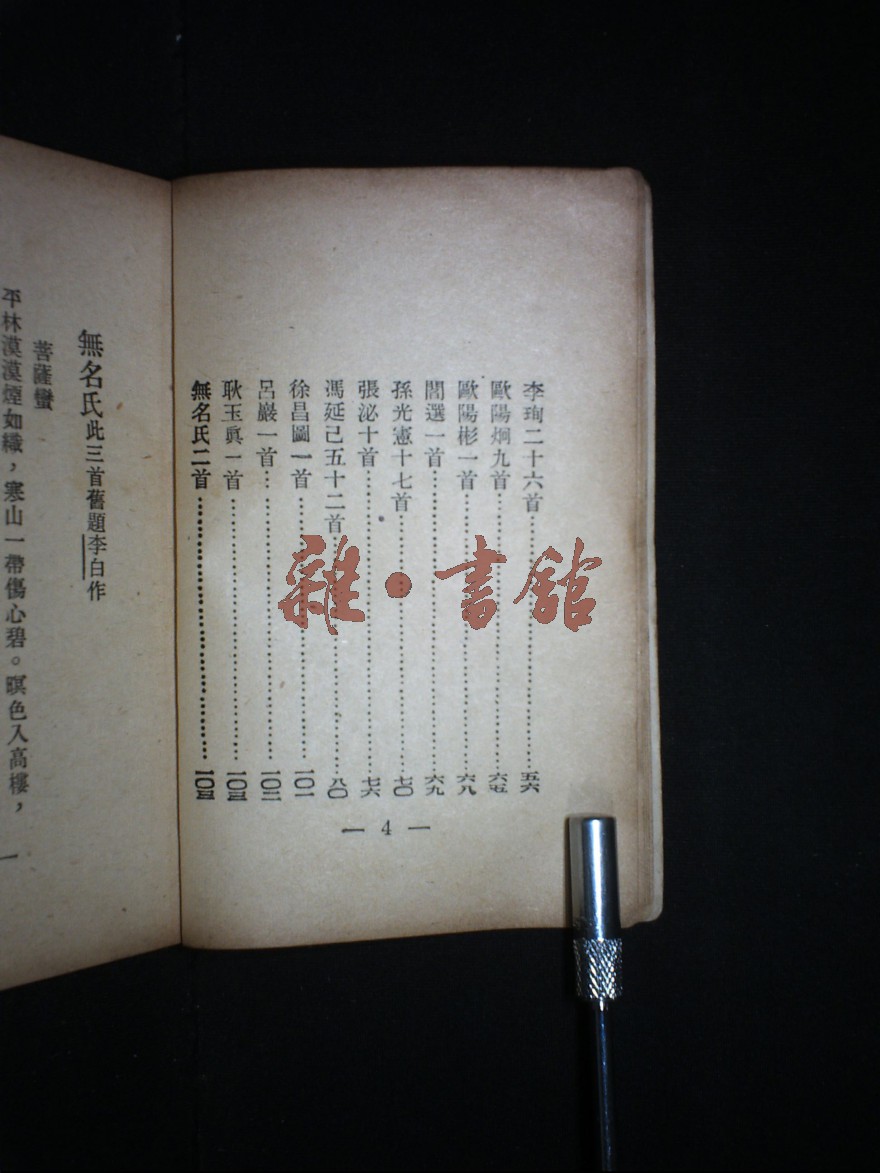 李珣二十六首……五六
歐陽炯九首……六五
歐陽彬一首……六八
閻選一首……六九
孫光憲十七首……七〇
張泌十首……七六
馮延己五十二首……八〇
徐昌圖一首……一〇一
呂巖一首……一〇二
耿玉眞一首……一〇三
無名氏二首……一〇三
— 4 —
無名氏此三首舊題李白作
菩薩蠻
平林漠漠煙如織，寒山一帶傷心碧。暝色入高樓，
一
雜·書館